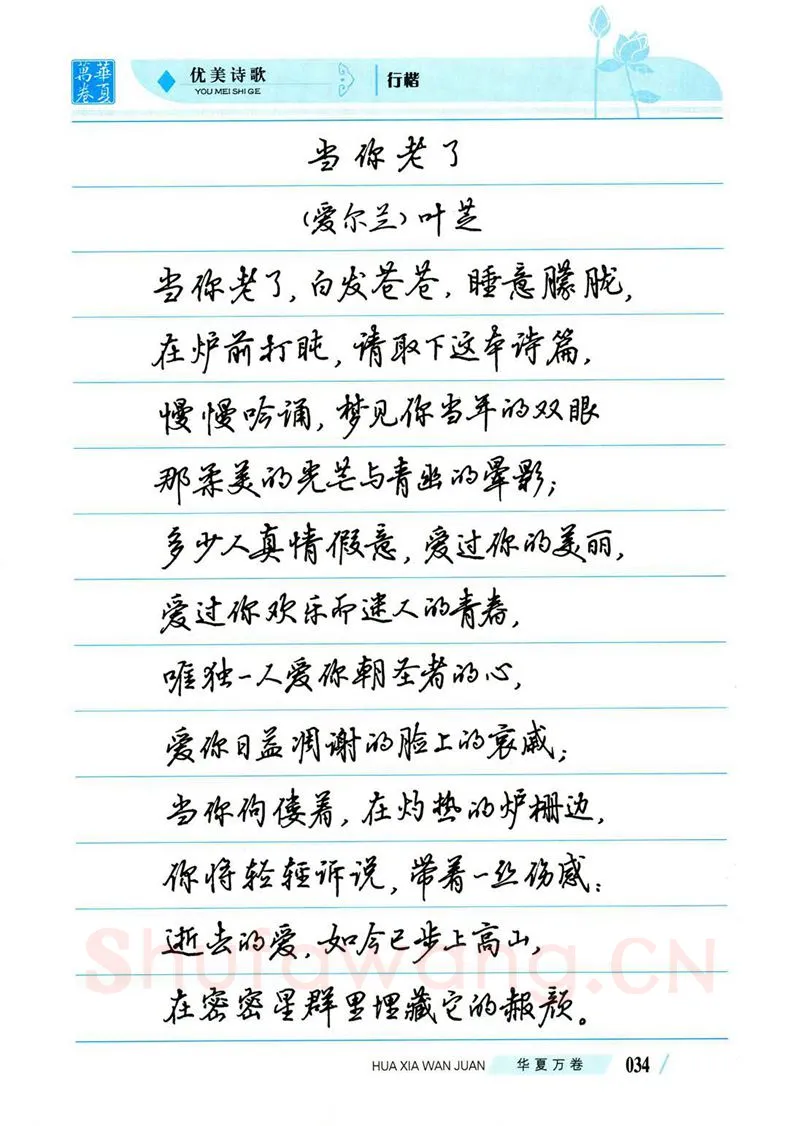 華夏萬卷
优美诗歌
YOU MEI SHI GE
行楷
当你老了
(爱尔兰)叶芝
当你老了,白发苍苍,睡意朦胧,
在炉前打盹,请取下这本诗篇,
慢慢吟诵,梦见你当年的双眼
那柔美的光芒与青幽的晕影;
多少人真情假意,爱过你的美丽,
爱过你欢乐而迷人的青春,
唯独一人爱你朝圣者的心,
爱你日益凋谢的脸上的哀戚;
当你佝偻着,在灼热的炉栅边,
你将轻轻诉说,带着一丝伤感:
逝去的爱,如今已步上高山,
在密密星群里埋藏它的赧颜。
Shufawang.CN
HUA XIA WAN JUAN
华夏万卷
034